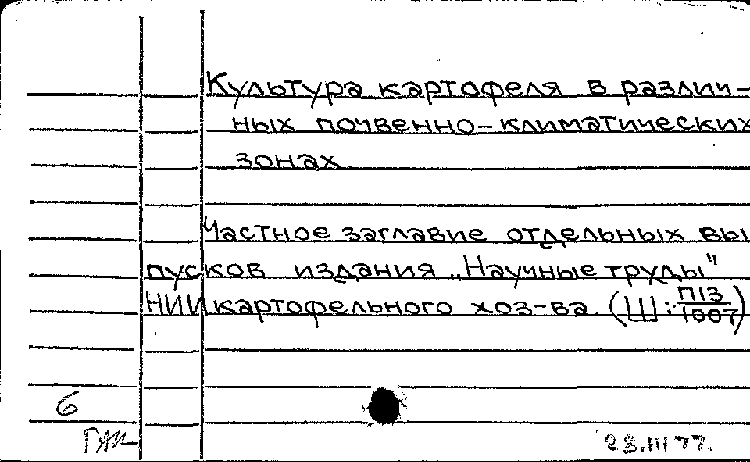 Культура картофеля в различ-
ных почвенно-климатических
зонах
Частное заглавие отдельных вы
пусков издания „Научные труды"
НИИ картофельного хоз-ва. (Ш: П13/1007)
6
23.III 77.